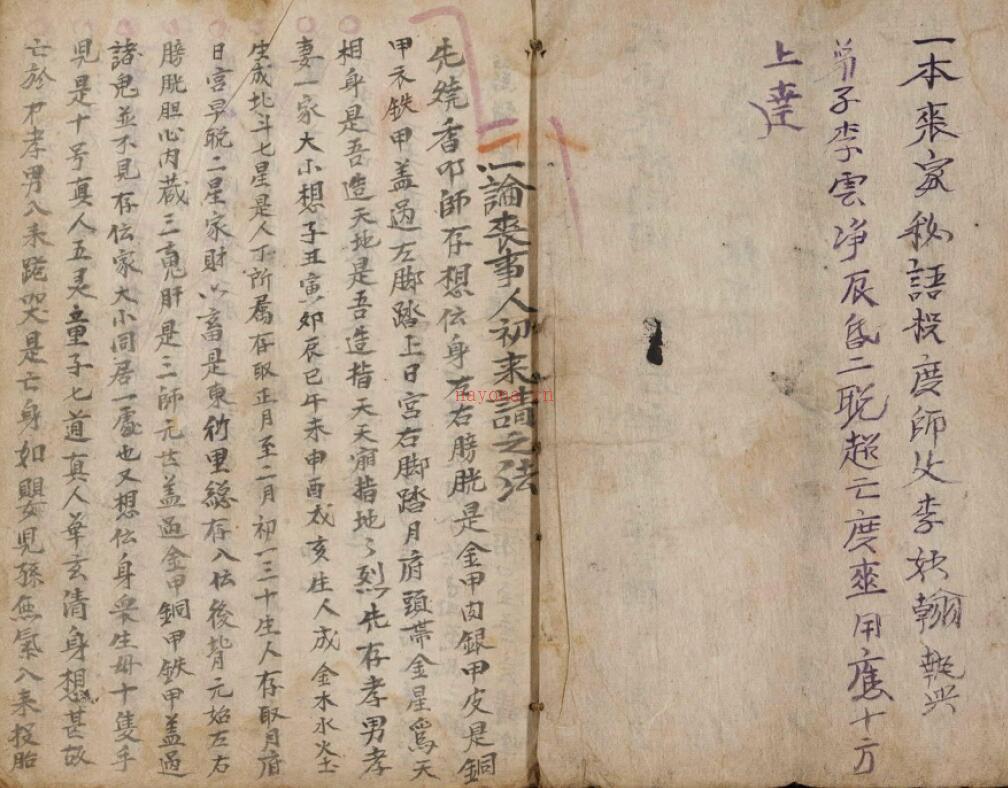 一本喪家秘語投度師父李妙翰執兴
弟子李雲净辰昏二聪超亡度䘮用應十方
上達
一論喪事人初来請之法
先燒香叩師存想伝身左右膀胱是金甲肉銀甲皮是銅
甲衣鉄甲盖過左脚踏上日宮右脚踏月府頭帯金星為天
相身是吾造天地是吾造指天天崩指地〻烈先存孝男孝
妻一家大小想子丑寅卯辰巳午未申酉戌亥生人成金木水火土
生成北斗七星是人丁所属存取正月至二月初一三十生人存取月府
日宮早晚二星家財六畜是東衍里総存入伝後背元始左右
膀胱胆心内蔵三魂肝是三師元古盖過金甲銅甲鉄甲盖過
諸鬼並不見存伝家大小同居一處也又想伝身衆生毋十隻手
児是十号真人五灵童子七道真人華玄清身想甚故
亡於木孝男入来跪哭是亡身如嬰児孫無氣入来投胎
hayona.cn